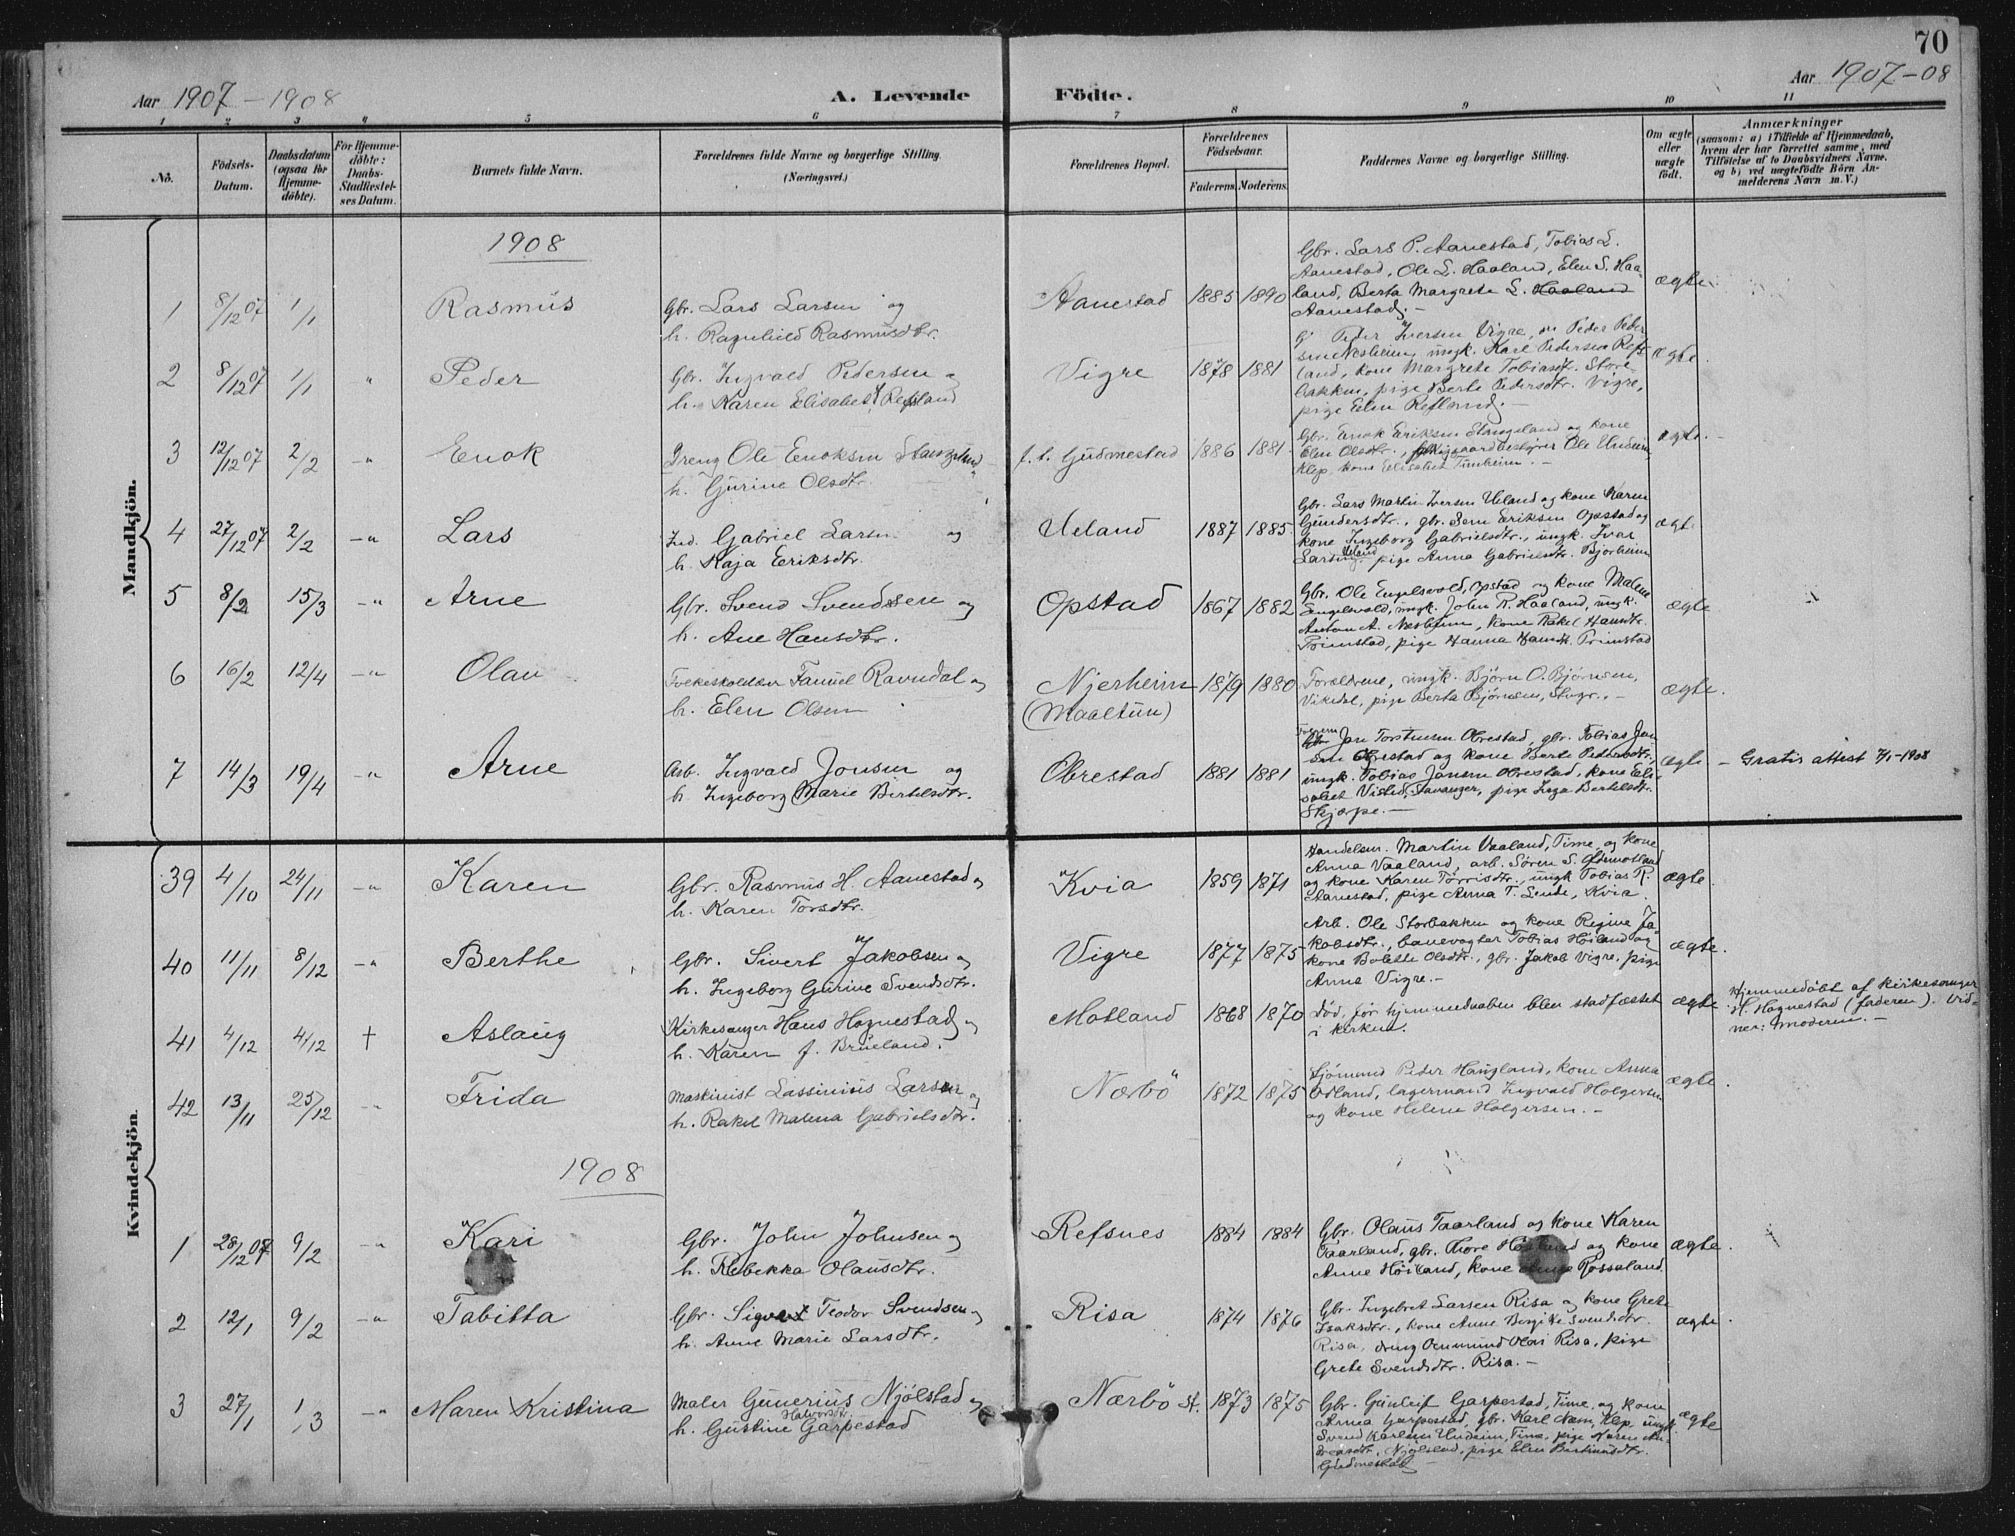 70
Aar 1907 - 1908 A. Levende Födte. Aar 1907-08
1 2 3 4 5 6 7 8 9 10 11
Nò.
Födsels-
Datum.
Daabsdatum
(ogsaa for
Hjemme-
döbte).
For Hjemme-
döbte:
Daabs-
Stadfæstel-
ses Datum.
Barnets fulde Navn.
Forældrenes fulde Navne og borgerlige Stilling.
(Næringsvei.)
Forældrenes Bopæl.
Forældrenes
Födselsaar.
Faderens. Moderens.
Faddernes Navne og borgerlige Stilling.
Om ægte
eller
uægte
födt.
Anmærkninger
(saasom: a) i Tilfælde af Hjemmedaab,
hvem der har forrettet samme, med
Tilföielse af to Daabsvidners Navne,
og b) ved uægtefödte Börn An-
melderens Navn m. V.)
Mandkjön.
1908
1 8/12 07 1/1 Rasmus
Gbr. Lars Larsen og
h. Ragnhild Rasmusdtr.
Aanestad 1885 1890
Gbr. Lars P. Aanestad, Tobias L.
Aanestad, Ole L. Haaland, Elen S. Haa-
land, Berta Margrete L. Haaland
Aanestad. -
ægte
2 8/12 07 1/1 " Peder
Gbr. Ingvald Pedersen og
h. Karen Elisabet Refsland
Vigre 1878 1881
Peder Iversen Vigre, Peder Peder
sen Nesheim, ungk. Karl Pedersen Refs
land, kone Margrete Tobiasdtr. Store-
bakken, pige Berte Pedersdtr. Vigre,
pige Elen Refsland. -
ægte.
3 12/12 07 2/2 -" Enok
Dreng Ole Enoksen Stangeland
h. Gurine Olsdtr.
f. t. Gudmestad 1886 1881
Gbr. Enok Eriksen Stangeland og kone
Elen Olsdtr., Ole Undeim
Klep, kone Elisabet Tunheim. -
ægte.
4 27/12 07 2/2 -" Lars
Ind. Gabriel Larsen og
h. Kaja Eriksdtr.
Ueland 1887 1885
Gbr. Lars Martin Iversen Ueland og kone Karen
Gundersdtr., gbr. Sem Eriksen Opstad og
kone Ingeborg Gabrielsdtr., ungk. Ivar
Larsen Ueland, pige Anna Gabrielsdtr. Bjorheim
ægte
5 8/2 15/3 -" Arne
Gbr. Svend Svendsen og
h. Ane Hansdtr.
Opstad 1867 1882
Gbr. Ole Engelsvold, Opstad og kone Malene
Engelsvold, ungk. John R. Haaland, ungk.
Anton A. Nesheim, kone Rakel Hansdtr.
Primstad, pige Hanna Hansdtr. Primstad
ægte
6 16/2 12/4 -" Olav
Folkeskolelær Fanuel Ravndal og
h. Elen Olsen
Njerheim
(Maaltun)
1879 1880
Forældrene, ungk. Bjørn O. Bjørnsen,
Vikedal, pige Berta Bjørnsen, Stvgr. -
ægte.
7 14/3 19/4 -" Arne
Arb. Ingvald Jonsen og
h. Ingeborg Marie Bertelsdtr.
Obrestad 1881 1881
Gbr. Jon Torstensen Obrestad, gbr. Tobias Jon
sen Obrestad og kone Berte Pedersdtr.
ungk. Tobias Jonsen Obrestad, kone Eli-
sabet Visted, Stavanger, pige Inga Bertelsdtr.
Skjærpe. -
ægte - Gratis attest 7/1-1908
Kvindekjön.
39 4/10 24/11 -" Karen
Gbr. Rasmus H. Aanestad og
h. Karen Torsdtr.
Kvia 1859 1871
Handelsm. Martin Vaaland, Time, og kone
Anna Vaaland, arb. Sören S. Ödemotland
og kone Karen Törrisdtr., ungk Tobias R.
Aanestad, pige Anna T. Linde, Kvia.
ægte.
40 11/11 8/12 -" Berthe
Gbr. Sivert Jakobsen og
h. Ingeborg Gurine Svendsdtr.
Vigre 1877 1875
Arb. Ole Storbakken og kone Regine Ja-
kobsdtr., banevogter Tobias Höiland og
kone Bolette Olsdtr., gbr. Jakob Vigre, pige
Anna Vigre. -
ægte.
41 4/12 4/12 † Aslaug
Kirkesanger Hans Hognestad og
h. Karen f. Brueland.
Motland 1868 1870
Död, för hjemmedaaben blev stadfæstet
i kirken.
ægte
Hjemmedöbt af kirkesanger
H. Hognestad (faderen). Vid-
ner: moderen. -
42 13/11 25/12 -" Frida
Maskinist Lassinius Larsen og
h. Rakel Malena Gabrielsdtr.
Nærbö 1872 1875
Sjömand Peder Haugland, kone Anna
Udland, lagermand Ingvald Holgersen
og kone Helene Holgersen. -
ægte.
1908
1 28/12 07 9/2 -" Kari
Gbr. John Johnsen og
h. Rebekka Olausdtr.
Refsnes 1884 1884
Gbr. Olaus Taarland og kone Karen
Taarland, gbr. Thore Höiland og kone
Anne Höiland, kone Anna Rossaland.
ægte.
2 12/1 9/2 -" Tabitta
Gbr. Sigvart Teodor Svendsen og
h. Anne Marie Larsdtr.
Risa 1874 1876
Gbr. Ingebret Larsen Risa og kone Grete
Isaksdtr., kone Anne Bergike Svendsdtr.
Risa, dreng Ommund Olai Risa, pige
Grete Svendsdtr. Risa. -
ægte.
3 27/1 1/3 -" Maren Kristina
Maler Gunerius Njölstad og
h. Gustine Halvorsdtr. Garpestad
Nærbö st. 1873 1875
Gbr. Gunleif Garpestad, Time, og kone
Anna Garpestad, gbr. Karl Næm, Klep, ungk.
Svend Karlsen Undeim, Time, pige Karen An-
dreasdtr. Njölstad, pige Elen Bertinusdtr.
Gudmestad -
ægte